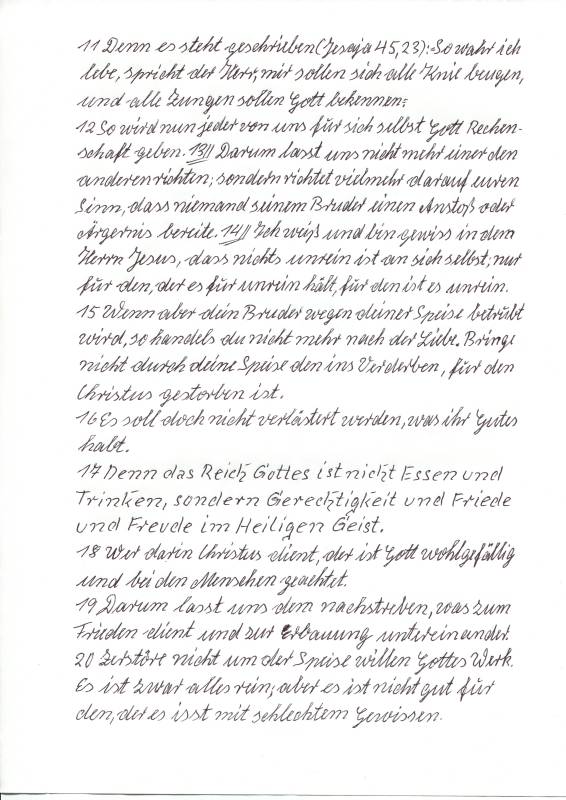 11 Denn es steht geschrieben (Jesaja 45,23): »So wahr ich
lebe, spricht der Herr, mir sollen sich alle Knie beugen,
und alle Zungen sollen Gott bekennen.«
12 So wird nun jeder von uns für sich selbst Gott Rechen-
schaft geben. 13// Darum lasst uns nicht mehr einer den
anderen richten; sondern richtet vielmehr darauf euren
Sinn, dass niemand seinem Bruder einen Anstoß oder
Ärgernis bereite. 14// Ich weiß und bin gewiss in dem
Herrn Jesus, dass nichts unrein ist an sich selbst; nur
für den, der es für unrein hält, für den ist es unrein.
15 Wenn aber dein Bruder wegen deiner Speise betrübt
wird, so handels du nicht mehr nach der Liebe. Bringe
nicht durch deine Speise den ins Verderben, für den
Christus gestorben ist.
16 Es soll doch nicht verlästert werden, was ihr Gutes
habt.
17 Denn das Reich Gottes ist nicht Essen und
Trinken, sondern Gerechtigkeit und Friede
und Freude im Heiligen Geist.
18 Wer darin Christus dient, der ist Gott wohlgefällig
und bei den Menschen geachtet.
19 Darum lasst uns dem nachstreben, was zum
Frieden dient und zur Erbauung untereinander.
20 Zerstöre nicht um der Speise willen Gottes Werk.
Es ist zwar alles rein; aber es ist nicht gut für
den, der es isst mit schlechtem Gewissen.